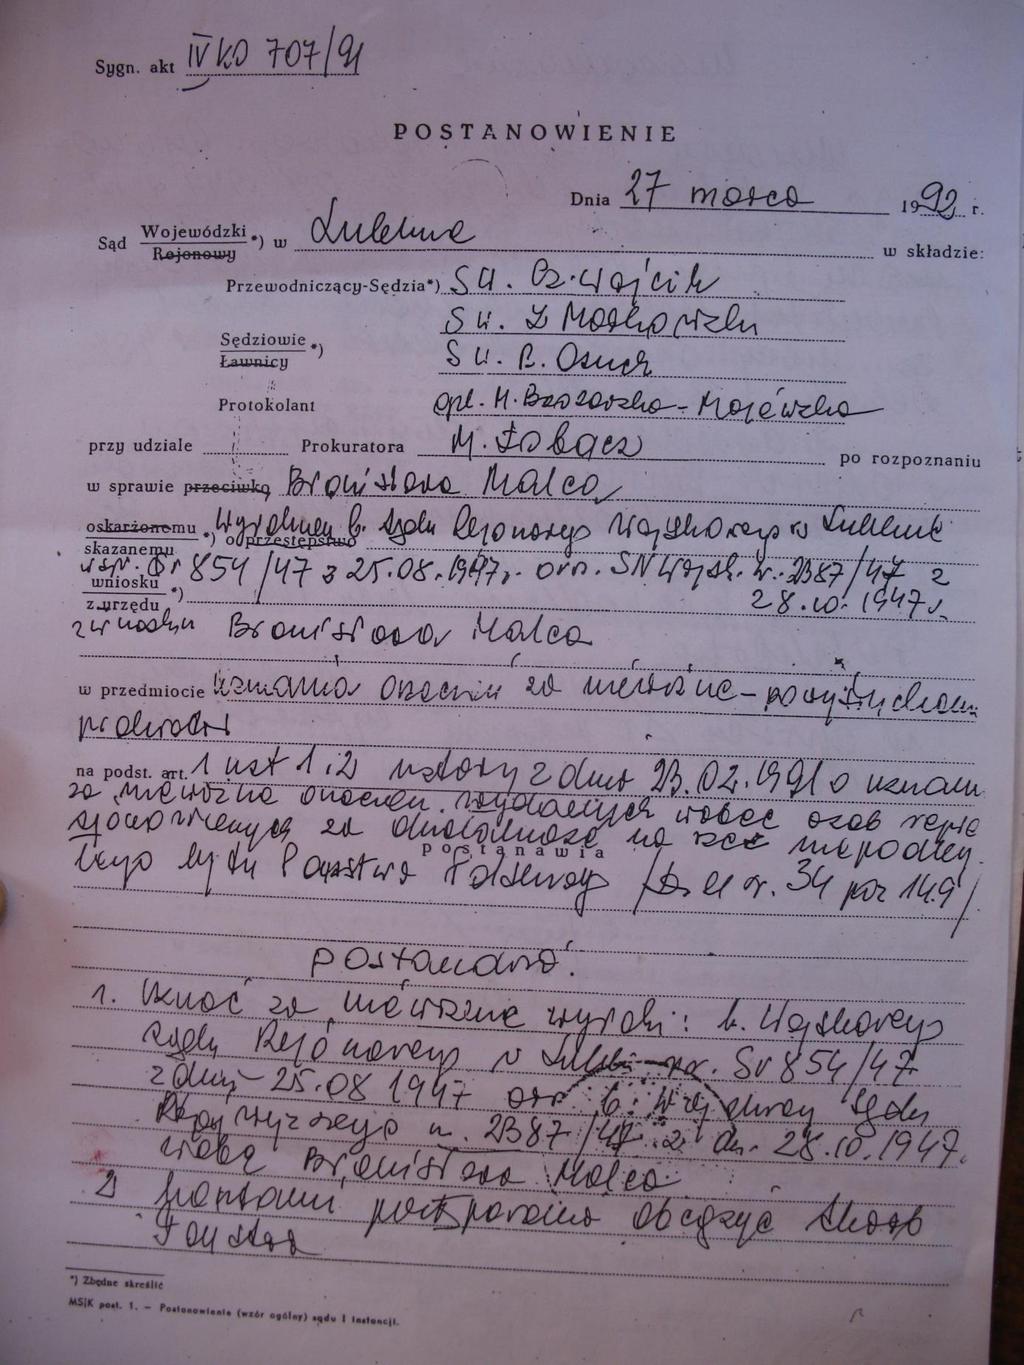 Sygn. akt IV KO 707/91
POSTANOWIENIE
Dnia 27 marca 1992 r.
Sąd Wojewódzki
Rejonowy *) w Lublinie w składzie:
Przewodniczący-Sędzia*) SW. Cz. Wójcik
SW. Z
Sędziowie
Ławnicy *) SW. R. Osuch
Protokolant apl. M. - Majewska
przy udziale Prokuratora M. po rozpoznaniu
w sprawie przeciwko Bronisława Malca
oskarżonemu
skazanemu *) o przestępstwo b. Sądu Rejonowego Wojskowego w Lublinie
Sr 854/47 z 25.08.1947r. oraz SN Wojsk. 2387/47 z
wniosku
z urzędu *) 28.10.1947r.
z wniosku Bronisława Malca
w przedmiocie uznania orzeczeń za nieważne -
na podst. art. 1 ust 1 i 2 ustawy z dnia 23.02.1991 o uznaniu
za nieważne orzeczeń wydanych wobec osób repre
sjonowanych za działalność na rzecz niepodleg
postanawia
łego bytu Państwa Polskiego /Dz. U nr. 34 poz 149/
postanowił:
1. Uznać za nieważne wyroki: b. Wojskowego
Sądu Rejonowego w Lublinie nr. Sr 854/47
z dnia 25.08 1947 oraz b.
Najwyższego n. 2387/47 z dn. 28.10.1947.
wobec Bronisława Malca
2) postępowania obciążyć Skarb
Państwa
*) Zbędne skreślić
MS/K post. 1. – Postanowienie (wzór ogólny) sądu I instancji.